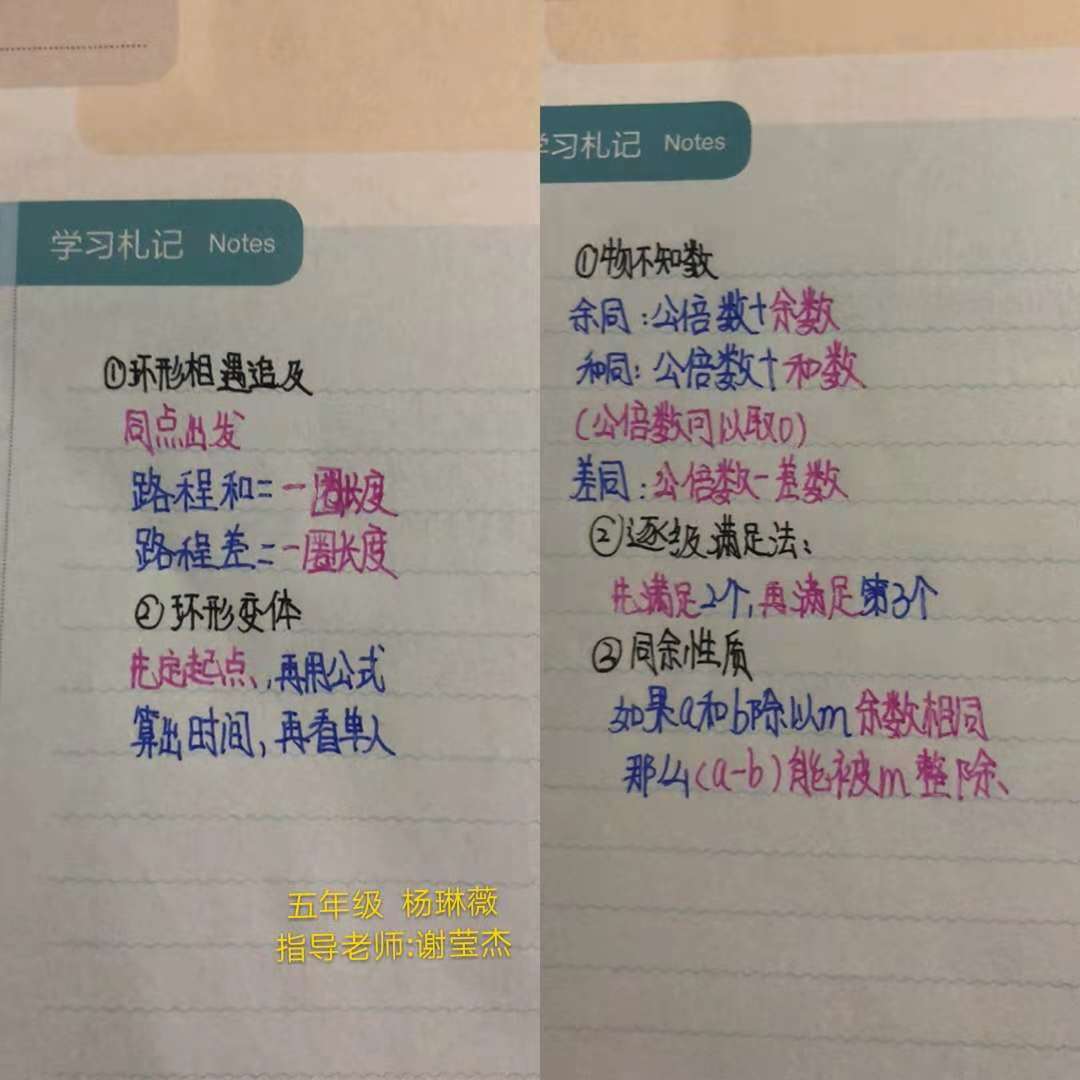 学习札记 Notes
①环形相遇追及
同点出发
路程和=一圈长度
路程差=一圈长度
②环形变体
先定起点,再用公式
算出时间,再看单人
五年级 杨琳薇
指导老师:谢莹杰
学习札记 Notes
①物不知数
余同:公倍数+余数
和同:公倍数+和数
(公倍数可以取0)
差同:公倍数-差数
②逐级满足法:
先满足2个,再满足第3个
③同余性质
如果a和b除以m余数相同
那么(a-b)能被m整除、